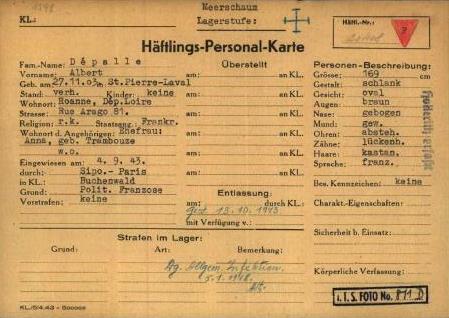 Meerschaum
KL:
Lagerstufe:
Häftl.-Nr.:
Häftlings-Personal-Karte
Fam.-Name: Dépalle
Vorname: Albert
Geb. am: 27.11.03 in: St.Pierre-Laval
Stand: verh. Kinder: keine
Wohnort: Roanne, Dép.Loire
Strasse: Rue Arago 81.
Religion: r.k. Staatsang. Frankr.
Wohnort d. Angehörigen: Ehefrau:
Anna, geb. Trambouze
w.o.
Eingewiesen am: 4. 9. 43.
durch: Sipo.- Paris
in KL.: Buchenwald
Grund: Polit. Franzose
Vorstrafen: keine
Überstellt
am: an KL.
am: an KL.
am: an KL.
am: an KL.
am: an KL.
am: an KL.
Entlassung:
am: durch KL.:
gest 13.10.1943
mit Verfügung v.:
Personen-Beschreibung:
Grösse: 169 cm
Gestalt: schlank
Gesicht: oval
Augen: braun
Nase: gebogen
Mund: gew.
Ohren: absteh.
Zähne: lückenh.
Haare: kastan.
Sprache: franz.
Bes. Kennzeichen: keine
Charakt.-Eigenschaften:
Sicherheit b. Einsatz:
Körperliche Verfassung:
Strafen im Lager:
Grund: Art: Bemerkung:
Allgem. Infektion.
I.T.S. FOTO No.
KL/5/4.43 - 500000